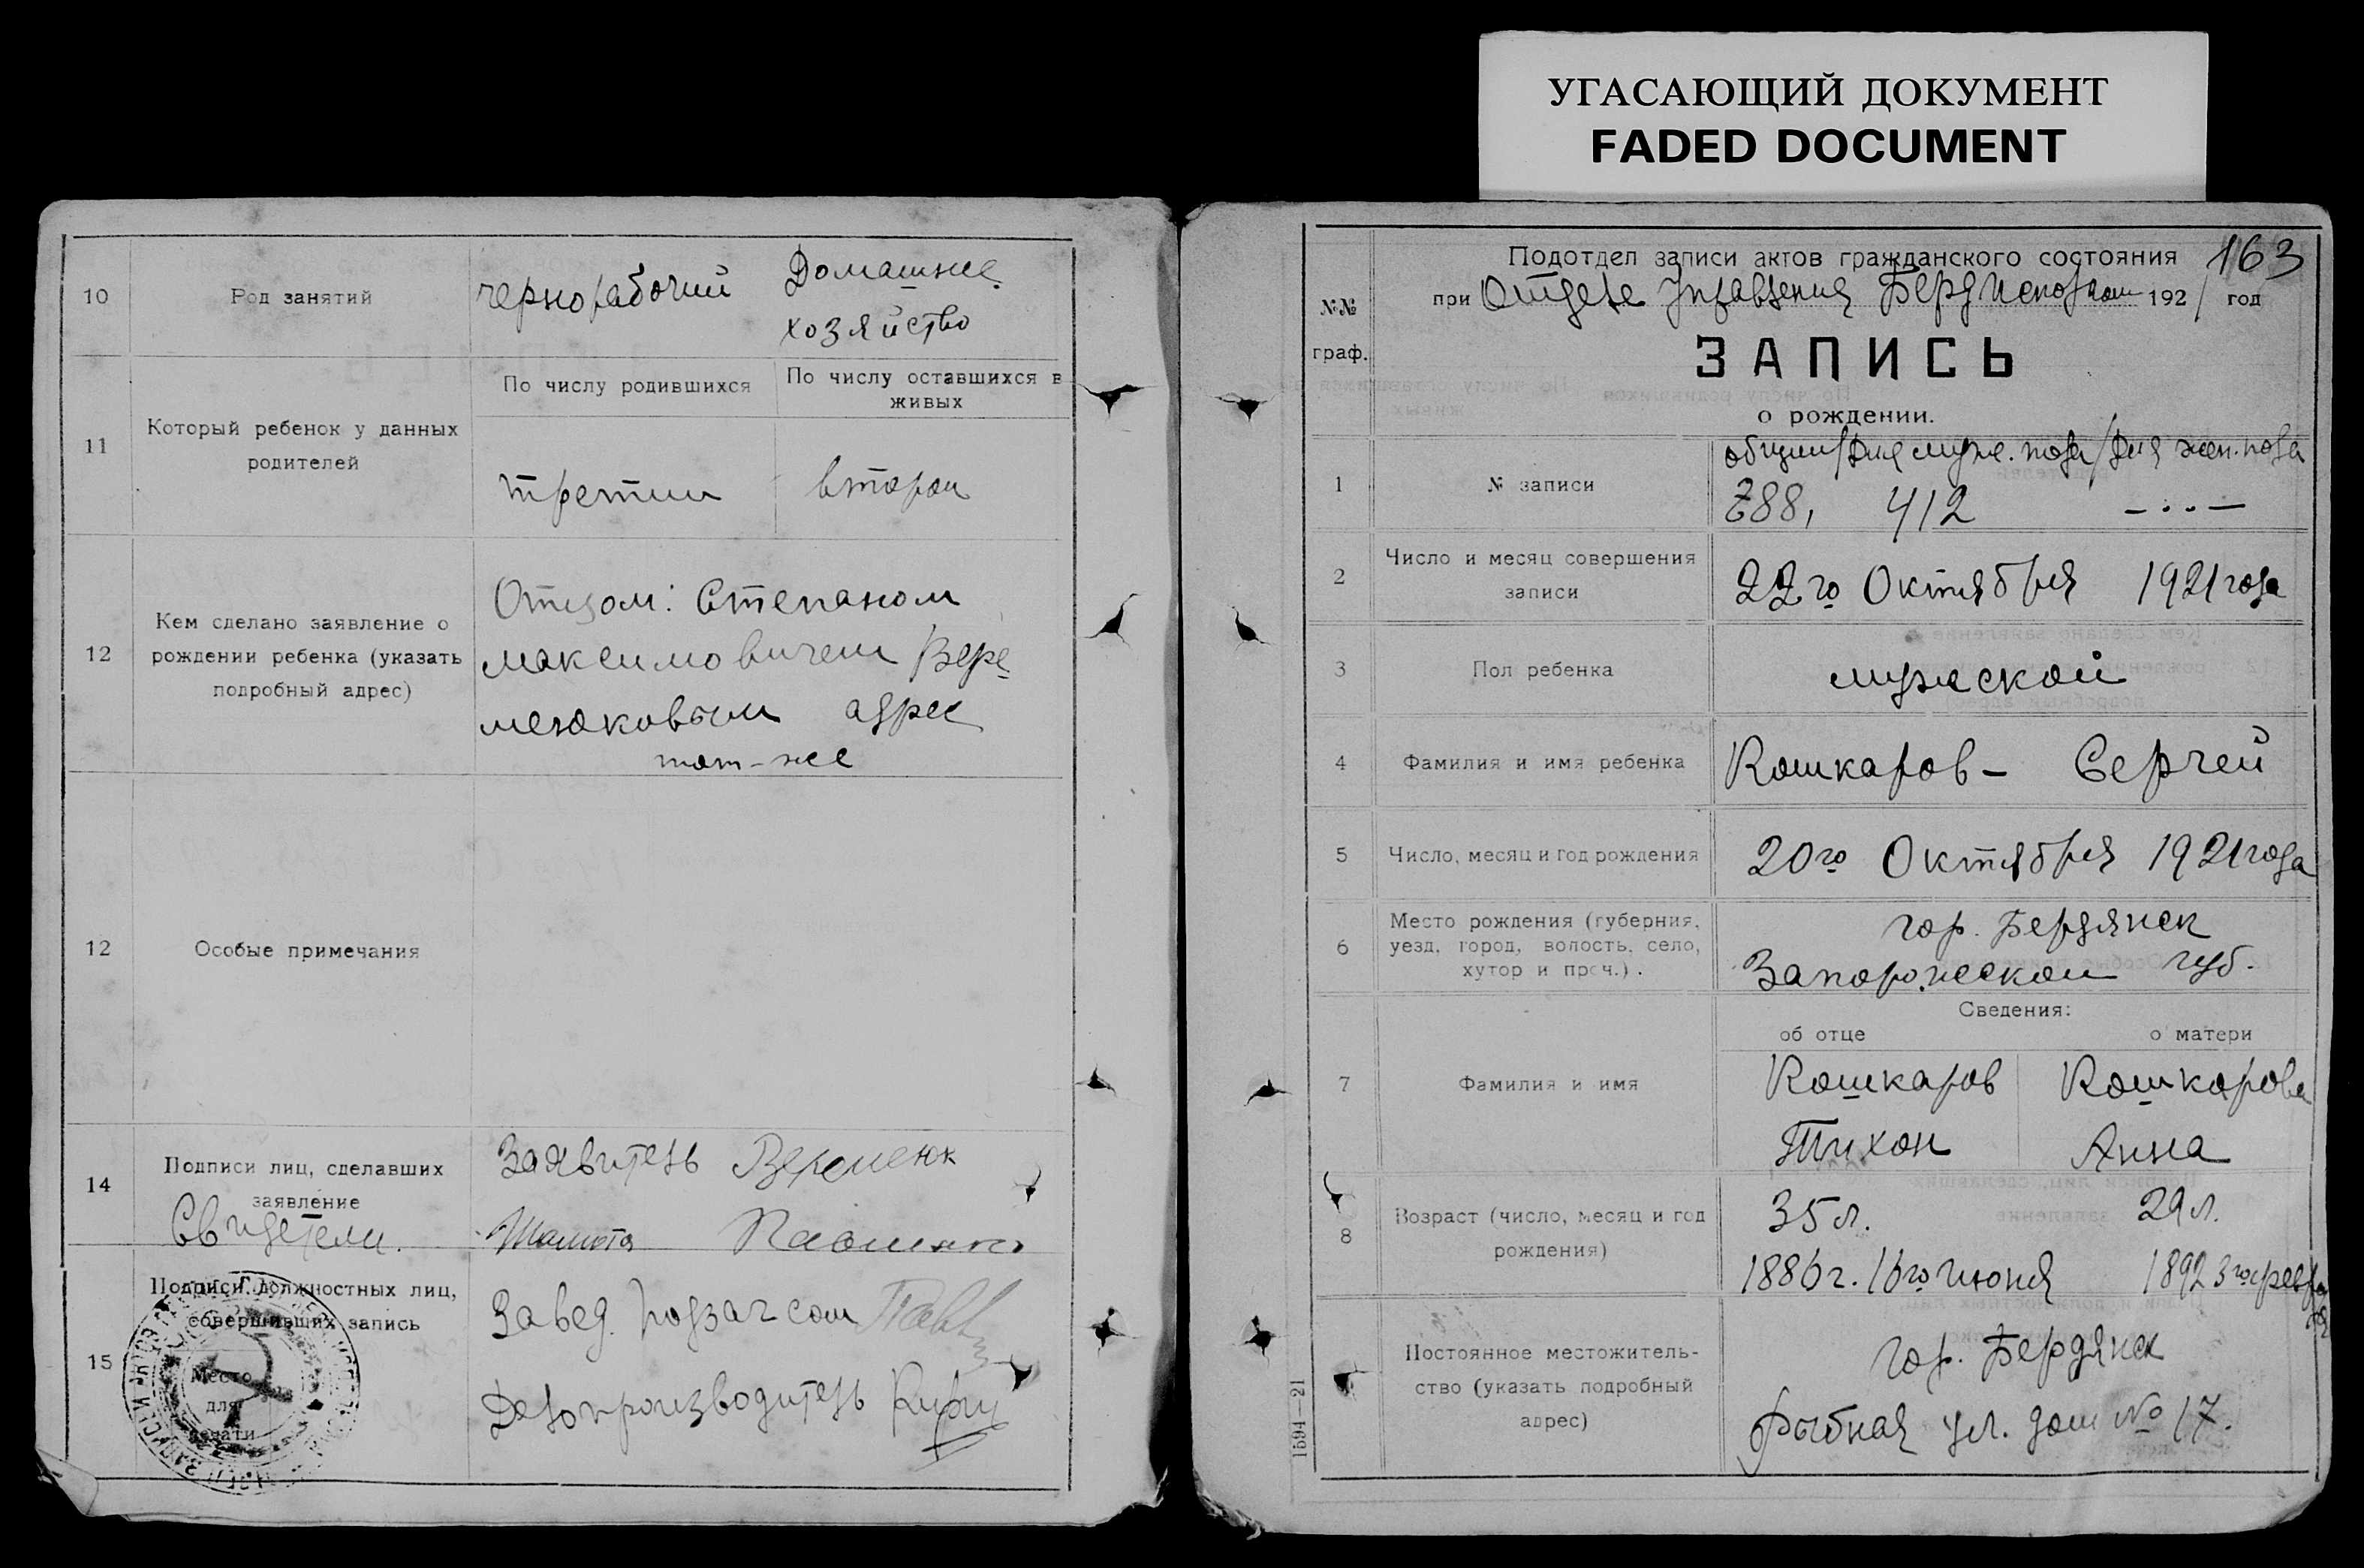 УГАСАЮЩИЙ ДОКУМЕНТ
FADED DOCUMENT
10
Род занятий
чернорабочий
Домашнее
хозяйство
11
Который ребенок у данных
родителей
По числу родившихся
По числу оставшихся в
живых
третий
второй
12
Кем сделано заявление о
рождении ребенка (указать
подробный адрес)
Отцом: Степаном
Максимовичем Вере-
менюковым адрес
тот-же
12
Особые примечания
14
Подписи лиц, сделавших
заявление
Свидетели.
Заявитель Веременюк
15
Подписи должностных лиц,
совершивших запись
Место
для
печати
Завед. подзагсом
Делопроизводитель
163
№№
граф.
Подотдел записи актов гражданского состояния
при Отделе Управления Бердисполком 1921 год
ЗАПИСЬ
о рождении.
1
№ записи
общий/для муж. пола/для жен. пола
788, 412 —··—
2
Число и месяц совершения
записи
22го Октября 1921 года
3
Пол ребенка
мужской
4
Фамилия и имя ребенка
Кошкаров – Сергей
5
Число, месяц и год рождения
20го Октября 1921 года
6
Место рождения (губерния,
уезд, город, волость, село,
хутор и проч.).
гор. Бердянск
Запорожской губ.
Сведения:
об отце
о матери
7
Фамилия и имя
Кошкаров
Кошкарова
Тихон
Анна
8
Возраст (число, месяц и год
рождения)
35 л.
29 л.
1886 г. 16го июня
1892 3го февраля
Постоянное местожитель-
ство (указать подробный
адрес)
гор. Бердянск
Рыбная ул. дом № 17.
1594—21